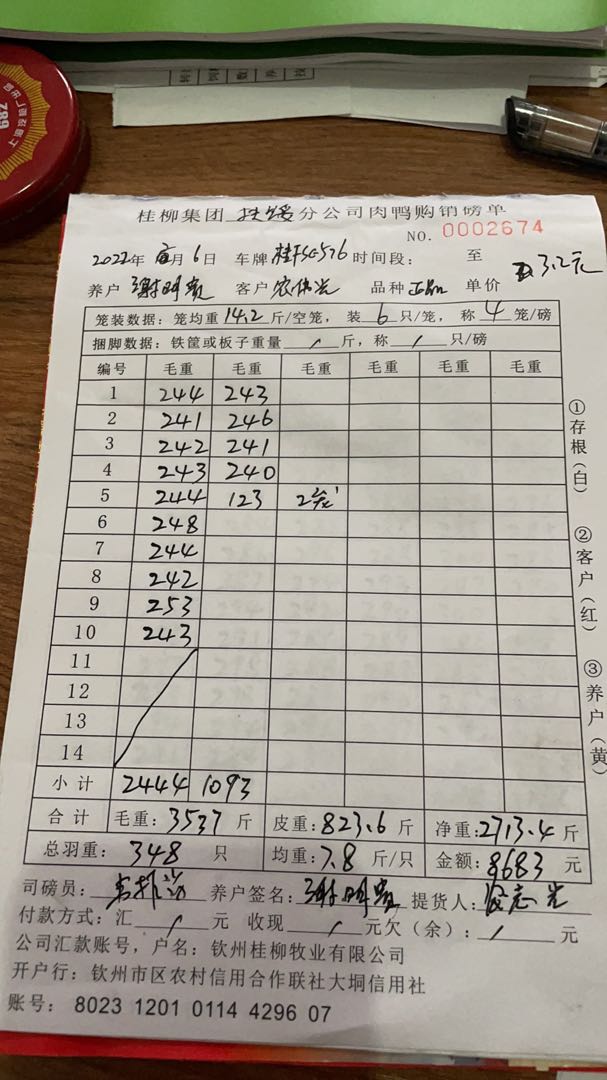 桂柳集团 扶绥 分公司肉鸭购销磅单
NO. 0002674
2022年 月 6 日 车牌 时间段： 至
3.2元
养户 谢明贵 客户 农伟光 品种 正品 单价
笼装数据：笼均重 14.2 斤/空笼，装 6 只/笼，称 4 笼/磅
捆脚数据：铁筐或板子重量 / 斤，称 / 只/磅
编号 毛重 毛重 毛重 毛重 毛重 毛重
1 244 243
2 241 246
3 242 241
4 243 240
5 244 123 2笼
6 248
7 244
8 242
9 253
10 243
11
12
13
14
小计 2444 1093
合计 毛重：3537 斤 皮重：823.6 斤 净重：2713.4 斤
总羽重： 348 只 均重：7.8 斤/只 金额：8683 元
司磅员： 养户签名：谢明贵 提货人：
付款方式：汇 / 元 收现 / 元欠（余）： / 元
公司汇款账号，户名：钦州桂柳牧业有限公司
开户行：钦州市区农村信用合作联社大垌信用社
账号：8023 1201 0114 4296 07
①存根（白）
②客户（红）
③养户（黄）
789